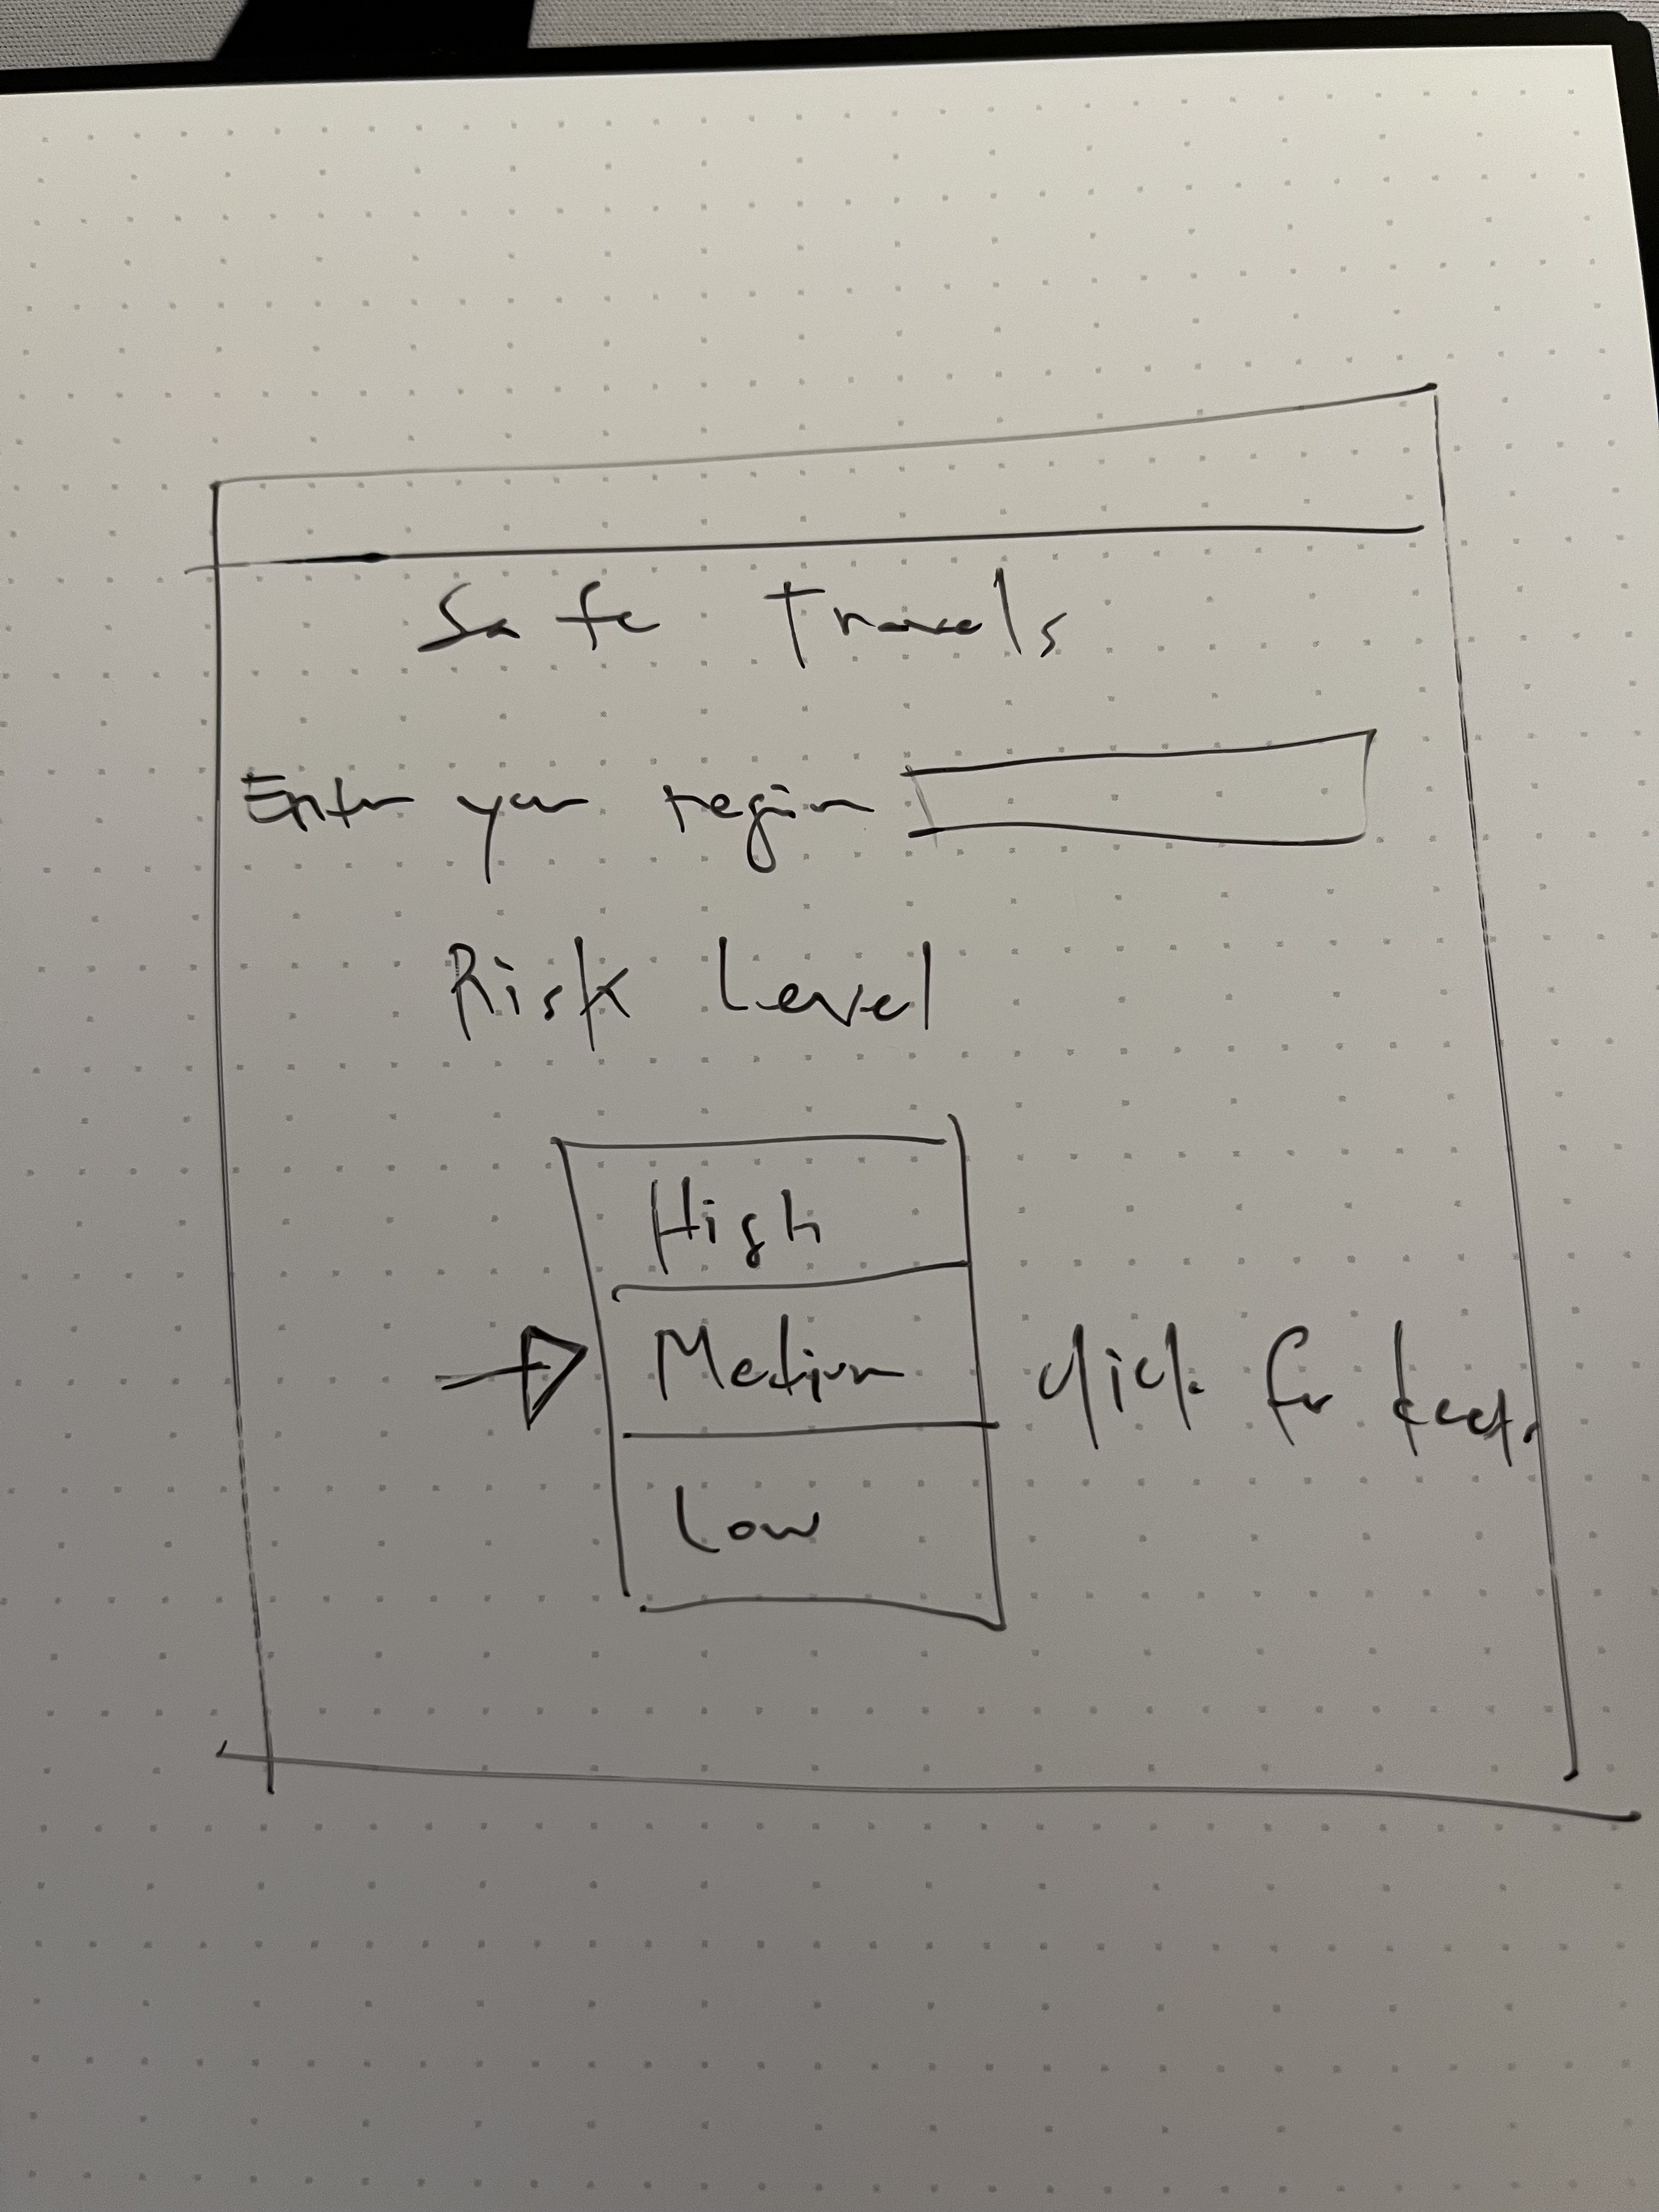 Safe Travels
Enter your region
Risk Level
High
Medium click for
Low